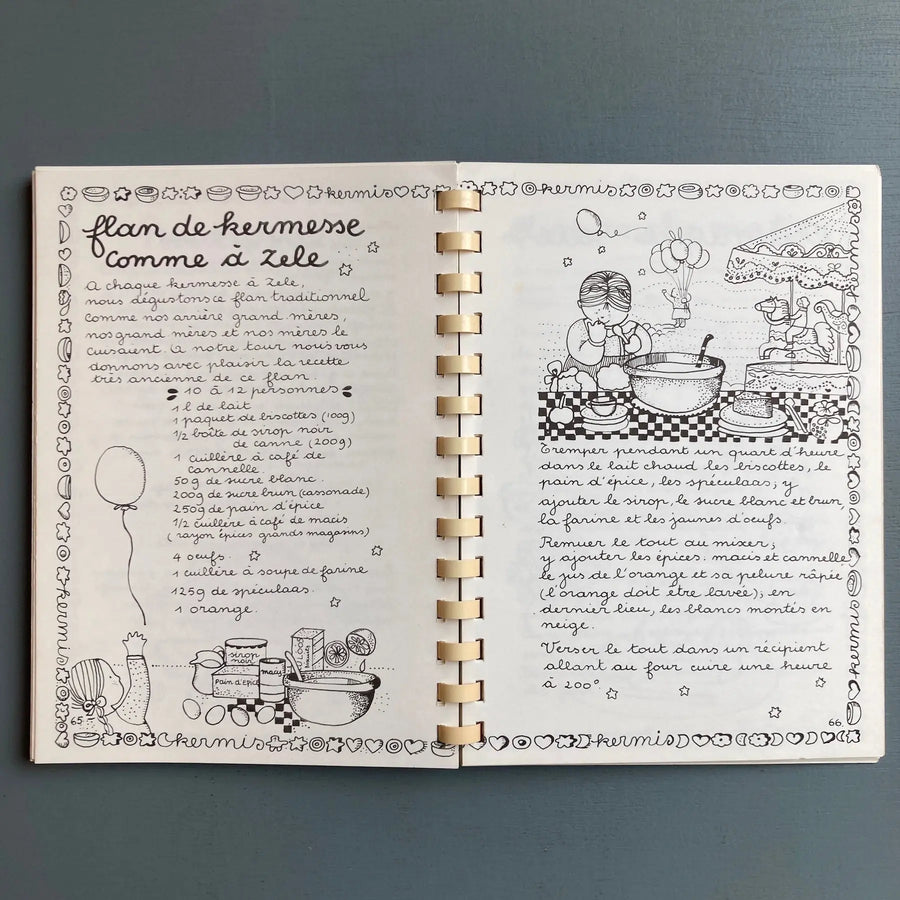 kermis
flan de kermesse
comme à Zele
A chaque kermesse à Zele,
nous dégustons ce flan traditionnel
comme nos arrière grand.mères,
nos grand mères et nos mères le
cuisaient. A notre tour nous vous
donnons avec plaisir la recette
très ancienne de ce flan.
10 à 12 personnes
1 l de lait
1 paquet de biscottes (100g)
1/2 boîte de sirop noir
de canne (200g)
1 cuillère à café de
cannelle.
50g de sucre blanc.
200g de sucre brun (cassonade)
250g de pain d'épice
1/2 cuillère à café de macis
(rayon épices grands magasins)
4 oeufs.
1 cuillère à soupe de farine
125g de spéculaas.
1 orange.
sirop
noir
pain d'épice
macis
kermis
65
kermis
kermis
kermis
Tremper pendant un quart d'heure
dans le lait chaud les biscottes, le
pain d'épice, les spéculaas; y
ajouter le sirop, le sucre blanc et brun,
la farine et les jaunes d'oeufs.
Remuer le tout au mixer;
y ajouter les épices. macis et cannelle,
le jus de l'orange et sa pelure râpée
(l'orange doit être lavée); en
dernier lieu, les blancs montés en
neige.
Verser le tout dans un récipient
allant au four cuire une heure
à 200°
66.
kermis
kermis
kermis